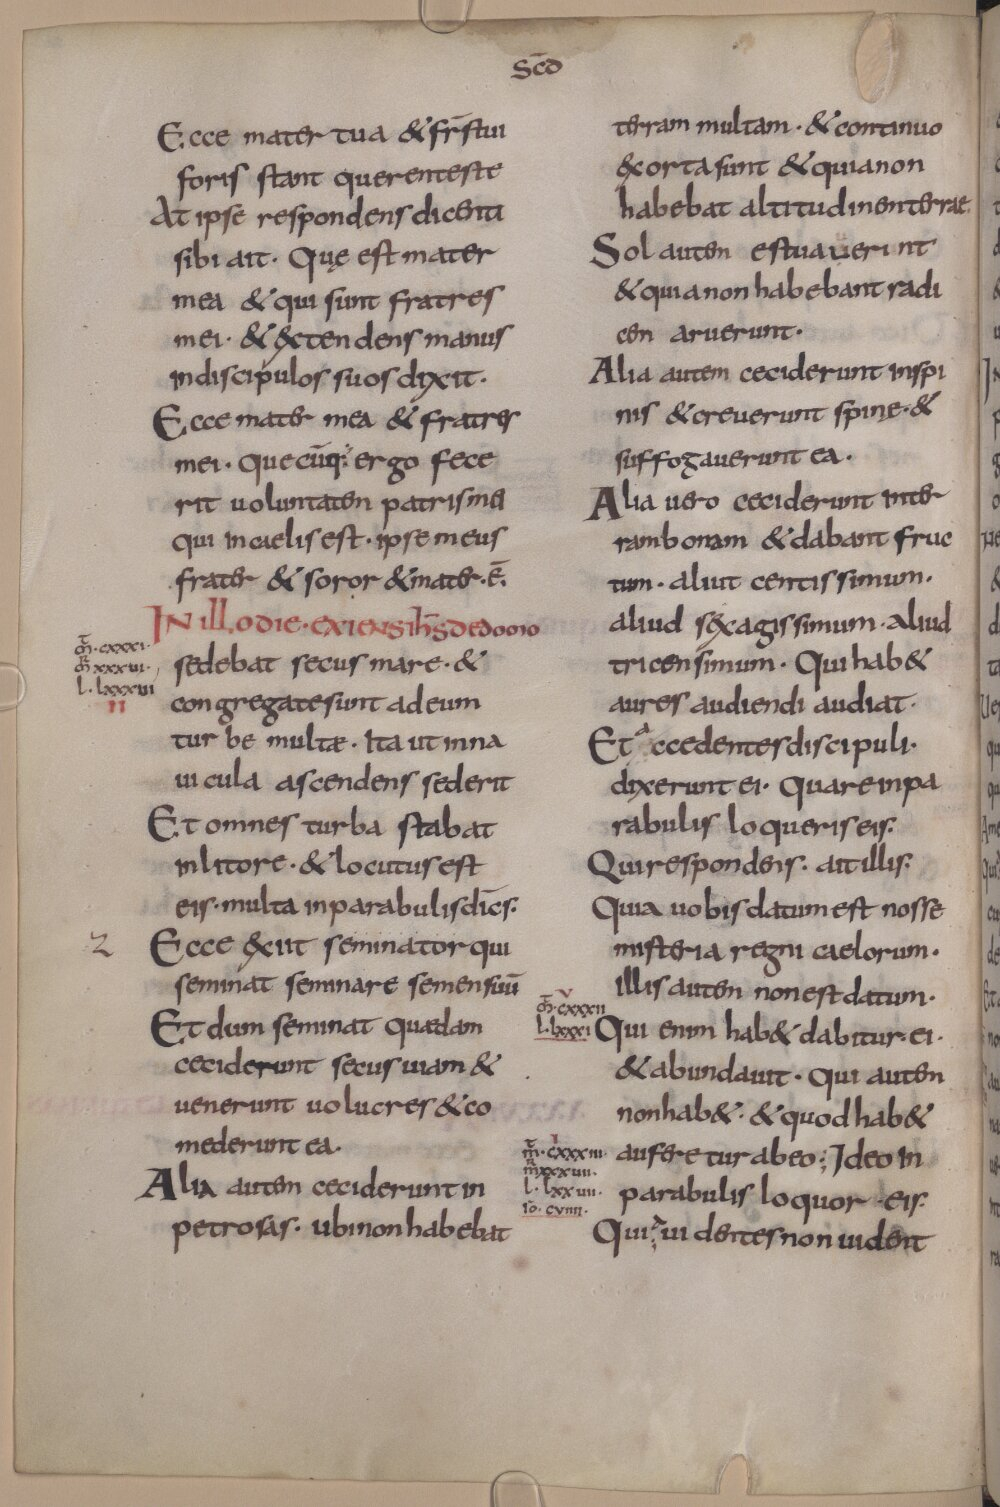 Scd̄
Ecce mater tua & fr̄s tui
foris stant querentes te
At ipse respondens dicenti
sibi ait. Quę est mater
mea & qui sunt fratres
mei. & extendens manus
in discipulos suos dixit.
Ecce mater mea & fratres
mei. Quecūq; ergo fece
rit uoluntatem patris mei
qui in caelis est. ipse meus
frater & soror & mater. ē.
IN illo die. exiens ih̄s de domo
m̄. cxxxi.
m̄ xxxvi.
l. lxxxvi
II
sedebat secus mare. &
congregate sunt ad eum
turbe multæ. Ita ut in na
uicula ascendens sederit
Et omnes turba stabat
in litore. & locutus est
eis. multa in parabulis dic̄s.
2
Ecce exiit seminator qui
seminat seminare semen suū
Et dum seminat quaedam
ceciderunt secus uiam &
uenerunt uolucres & co
mederunt ea.
Alia autem ceciderunt in
petrosas. ubi non habebat
terram multam. & continuo
exorta sunt & quia non
habebat altitudinem terrae.
Sol autem estuauerint
& quia non habebant radi
cem aruerunt.
Alia autem ceciderunt in spi
nis & creuerunt spine. &
suffogauerunt ea.
Alia uero ceciderunt inter
ram bonam & dabant fruc
tum. aliut centissimum.
aliud sexagissimum. Aliud
tricensimum. Qui hab&
aures audiendi audiat.
Et accedentes discipuli.
dixerunt ei. Quare in pa
rabulis loqueris eis.
Qui respondens. ait illis.
Quia uobis datum est nosse
misteria regni caelorum.
illis autem non est datum.
V
m̄. cxxxii
l. lxxxi
Qui enim hab& dabitur. ei.
& abundauit. Qui autem
non hab&. & quod hab&
I
m̄. cxxxiii.
m̄ xxxvii.
l. lxxvii.
io. cviiii.
aufere tur ab eo; Ideo in
parabulis loquor eis.
Quia uidentes non uident